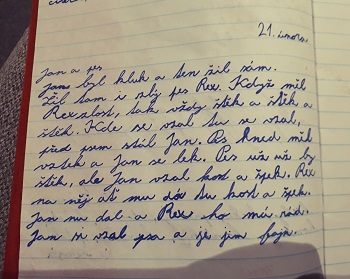 21. února
Jan a pes
Jan byl kluk a ten žil sám.
Žil tam i zlý pes Rex. Když měl
Rex zlost, tak vždy štěk a štěk a
štěk. Kde se vzal tu se vzal,
před psem stál Jan. Pes hned měl
vztek a Jan se lek. Pes už už by
štěk, ale Jan vzal kost a špek. Rex
na něj ať mu dá tu kost a špek.
Jan mu dal a Rex ho má rád.
Jan si vzal psa a je jim fajn.